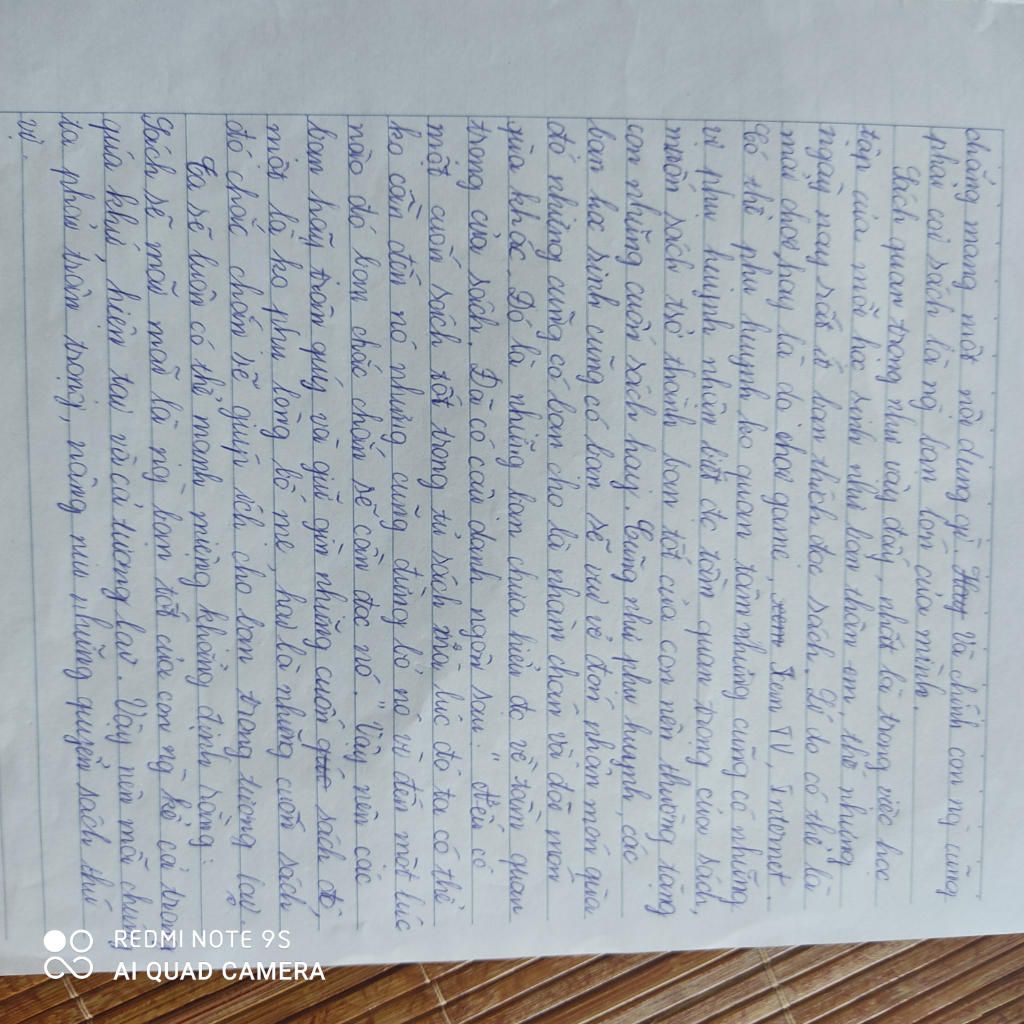 chẳng mang một nội dung gì. Và chính con ng cũng
phải coi sách là ng bạn lớn của mình.
Sách quan trọng như vậy đấy, nhất là trong việc học
tập của mỗi học sinh như bạn thân em, thế nhưng
ngày nay rất ít bạn thích đọc sách. Lí do có thể là
mải chơi, hay là do chơi game, xem Xem TV, Internet.
Có thể phụ huynh ko quan tâm nhưng cũng có những
vị phụ huynh nhận biết đc tầm quan trọng của sách,
muốn sách trở thành bạn tốt của con nên thường tặng
con những cuốn sách hay. Cũng như phụ huynh, các
bạn học sinh cũng có bạn sẽ vui vẻ đón nhận món quà
đó nhưng cũng có bạn cho là nhàm chán và đòi món
quà khác. Đó là những bạn chưa hiểu đc về tầm quan
trong của sách. Đã có câu danh ngôn sau: " Nếu có
một cuốn sách tốt trong tủ sách mà lúc đó ta có thể
ko cần đến nó nhưng cũng đừng bỏ nó vì đến một lúc
nào đó bạn chắc chắn sẽ cần đọc nó. "Vậy nên các
bạn hãy trân quý và giữ gìn những cuốn sách đó,
một là ko phụ lòng bố mẹ, hai là những cuốn sách
đó chắc chắn sẽ giúp ích cho bạn trong tương lai.
Ta sẽ luôn có thể mạnh miệng khẳng định rằng:
Sách sẽ mãi mãi là ng bạn tốt của con ng kể cả trong
quá khứ, hiện tại và cả tương lai. Vậy nên mỗi chúng
ta phải trân trọng, nâng niu những quyển sách thú
vị.
REDMI NOTE 9S
AI QUAD CAMERA